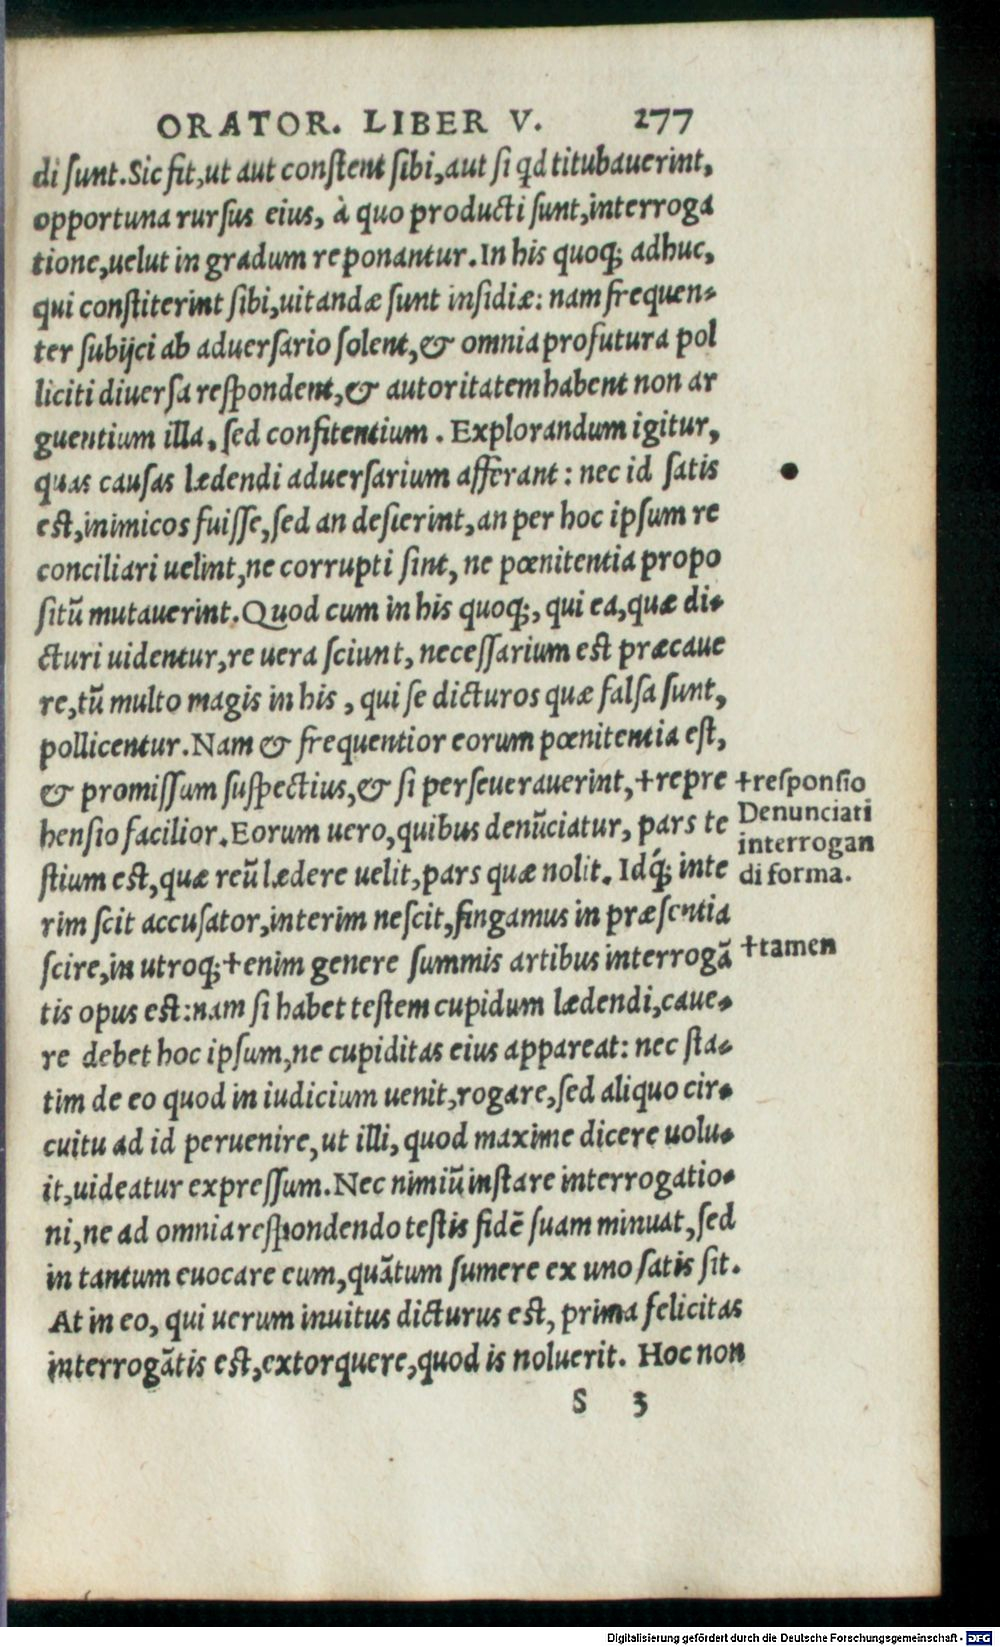 ORATOR. LIBER V. 277
di ſunt. Sic fit, ut aut conſtent ſibi, aut ſi qd titubauerint,
opportuna rurſus eius, à quo producti ſunt, interroga
tione, uelut in gradum reponantur. In his quoq; adhuc,
qui conſtiterint ſibi, uitandæ ſunt inſidiæ: nam frequen-
ter ſubijci ab aduerſario ſolent, & omnia profutura pol
liciti diuerſa reſpondent, & autoritatem habent non ar
guentium illa, ſed confitentium. Explorandum igitur,
quas cauſas lædendi aduerſarium afferant: nec id ſatis
eſt, inimicos fuiſſe, ſed an deſierint, an per hoc ipſum re
conciliari uelint, ne corrupti ſint, ne pœnitentia propo
ſitũ mutauerint. Quod cum in his quoq;, qui ea, quæ di-
cturi uidentur, re uera ſciunt, neceſſarium eſt præcaue
re, tũ multo magis in his, qui ſe dicturos quæ falſa ſunt,
pollicentur. Nam & frequentior eorum pœnitentia eſt,
& promiſſum ſuſpectius, & ſi perſeuerauerint, †repre
†responsio
henſio facilior. Eorum uero, quibus denũciatur, pars te
Denunciati
interrogan
di forma.
ſtium eſt, quæ reũ lædere uelit, pars quæ nolit. Idq́; inte
rim ſcit accuſator, interim neſcit, fingamus in præſentia
ſcire, in utroq; †enim genere ſummis artibus interrogã
†tamen
tis opus eſt: nam ſi habet teſtem cupidum lædendi, caue-
re debet hoc ipſum, ne cupiditas eius appareat: nec ſta-
tim de eo quod in iudicium uenit, rogare, ſed aliquo cir-
cuitu ad id peruenire, ut illi, quod maxime dicere uolu-
it, uideatur expreſſum. Nec nimiũ inſtare interrogatio-
ni, ne ad omnia reſpondendo teſtis fidẽ ſuam minuat, ſed
in tantum euocare eum, quãtum ſumere ex uno ſatis ſit.
At in eo, qui uerum inuitus dicturus eſt, prima felicitas
interrogãtis eſt, extorquere, quod is noluerit. Hoc non
S 3
Digitalisierung gefördert durch die Deutsche Forschungsgemeinschaft - DFG